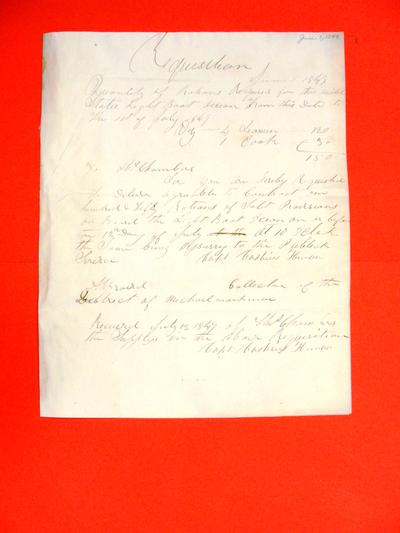 June 1, 1849
Requisition
June 1849
Quantity of Rations Required for the United
States Light Boat Ocean from this Date to
the 1st of July 1849
4 Seamen 120
1 Cook 30
150
To Thos Chambers
Sir you are hereby Requested
to Deliver agreeable to Contract one
hundred & fifty Rations of Salt Provisions
on Board the Light Boat Ocean on or before
the 12th Day of July at 10 Oclock
the Same being necessary to the Publick
Service Capt
Collector of the
District of
Received July 12 1849 of Thos Chambers
the Supplies in the Above Requisition
Capt